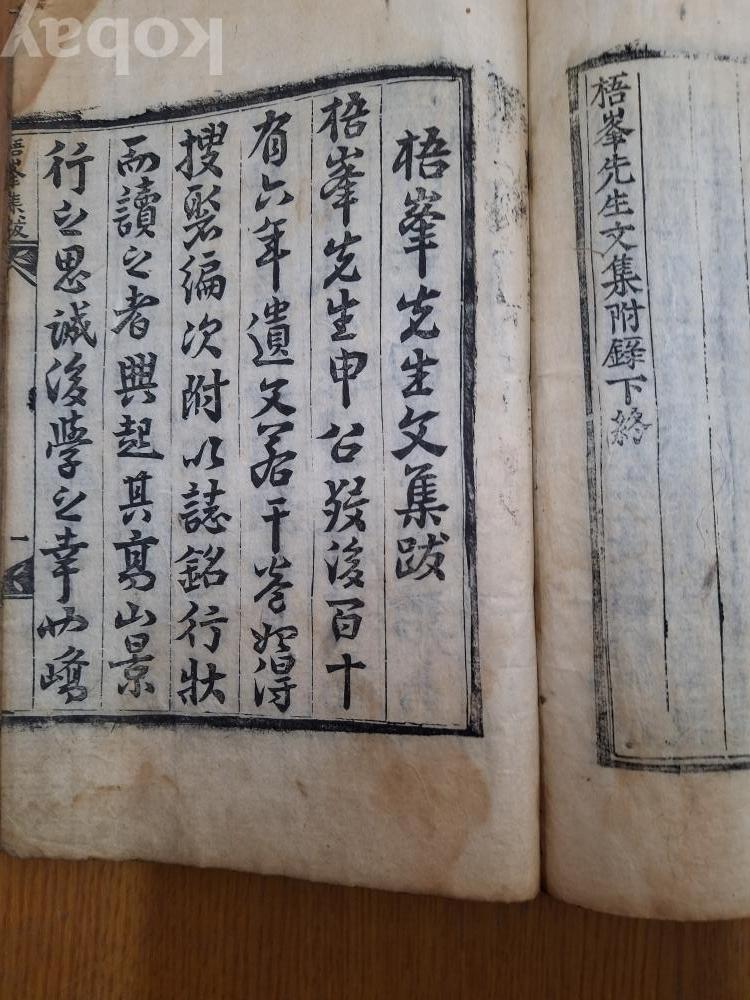 kobay
梧峯先生文集附錄下終
梧峯先生文集跋
梧峯先生申公歿後百十
有六年遺文若干卷始得
搜聚編次附以誌銘行狀
而讀之者興起其高山景
行之思誠後學之幸也嶠
梧峯集跋
一